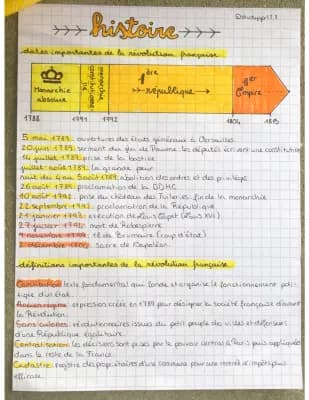 histoire
dates importantes de la révolution française
Monarchie absolue
monarchie constitutionnelle
1ère République
1er Empire
1788 1791 1792 1804 1815
5 mai 1789: ouvertures des états généraux à Versailles
20 juin 1789: serment du jeu de Paume: les députés écrivent une constitution
14 juillet 1789: prise de la bastille
juillet-août 1789: la grande peur
nuit du 4 au 5 août 1789: abolition des ordres et des privilèges
26 août 1789: proclamation de la DDHC
10 août 1792: prise du château des Tuileries: fin de la monarchie
22 septembre 1792: proclamation de la République
21 janvier 1793: exécution de Louis Capet (Louis XVI)
27 juillet 1794: mort de Robespierre
9 novembre 1799: 18 de Brumaire (coup d'état)
2 décembre 1804: Sacre de Napoléon
définitions importantes de la révolution française
Constitution: texte fondamental qui fonde et organise le fonctionnement poli-
tique d'un état
Ancien régime: expression créée en 1789 pour désigner la société française d'avant
la Révolution.
Sans culottes: révolutionnaires issus du petit peuple des villes et défenseurs
d'une République égalitaire
Centralisation: les décisions sont prises par le pouvoir central à Paris puis appliquées
dans le reste de la France
Cadastre: registre des propriétaires d'une commune pour une rentrée d'impôts plus
efficace.